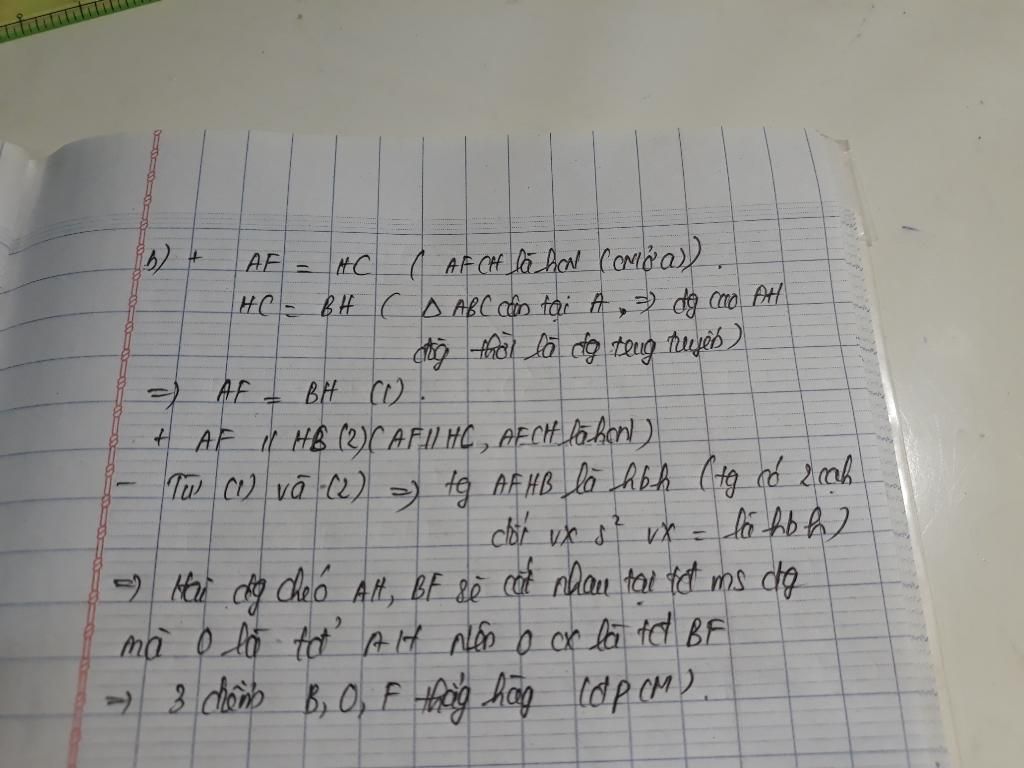 b) + AF = HC ( AFCH là hcn (cmở a)).
HC = BH ( Δ ABC cân tại A, => đg cao AH
đồg thời là đg trug tuyến)
=> AF = BH (1).
+ AF // HB (2) ( AF // HC, AFCH là hcn)
- Từ (1) và (2) => tg AFHB là hbh (tg có 2 cạh
đối vx s² vx = là hbh)
=> Hai đg chéo AH, BF sẽ cắt nhau tại tđ ms đg
mà O là tđ' AH nên O cx là tđ BF
=> 3 điểm B, O, F thẳg hàg (đpcm).